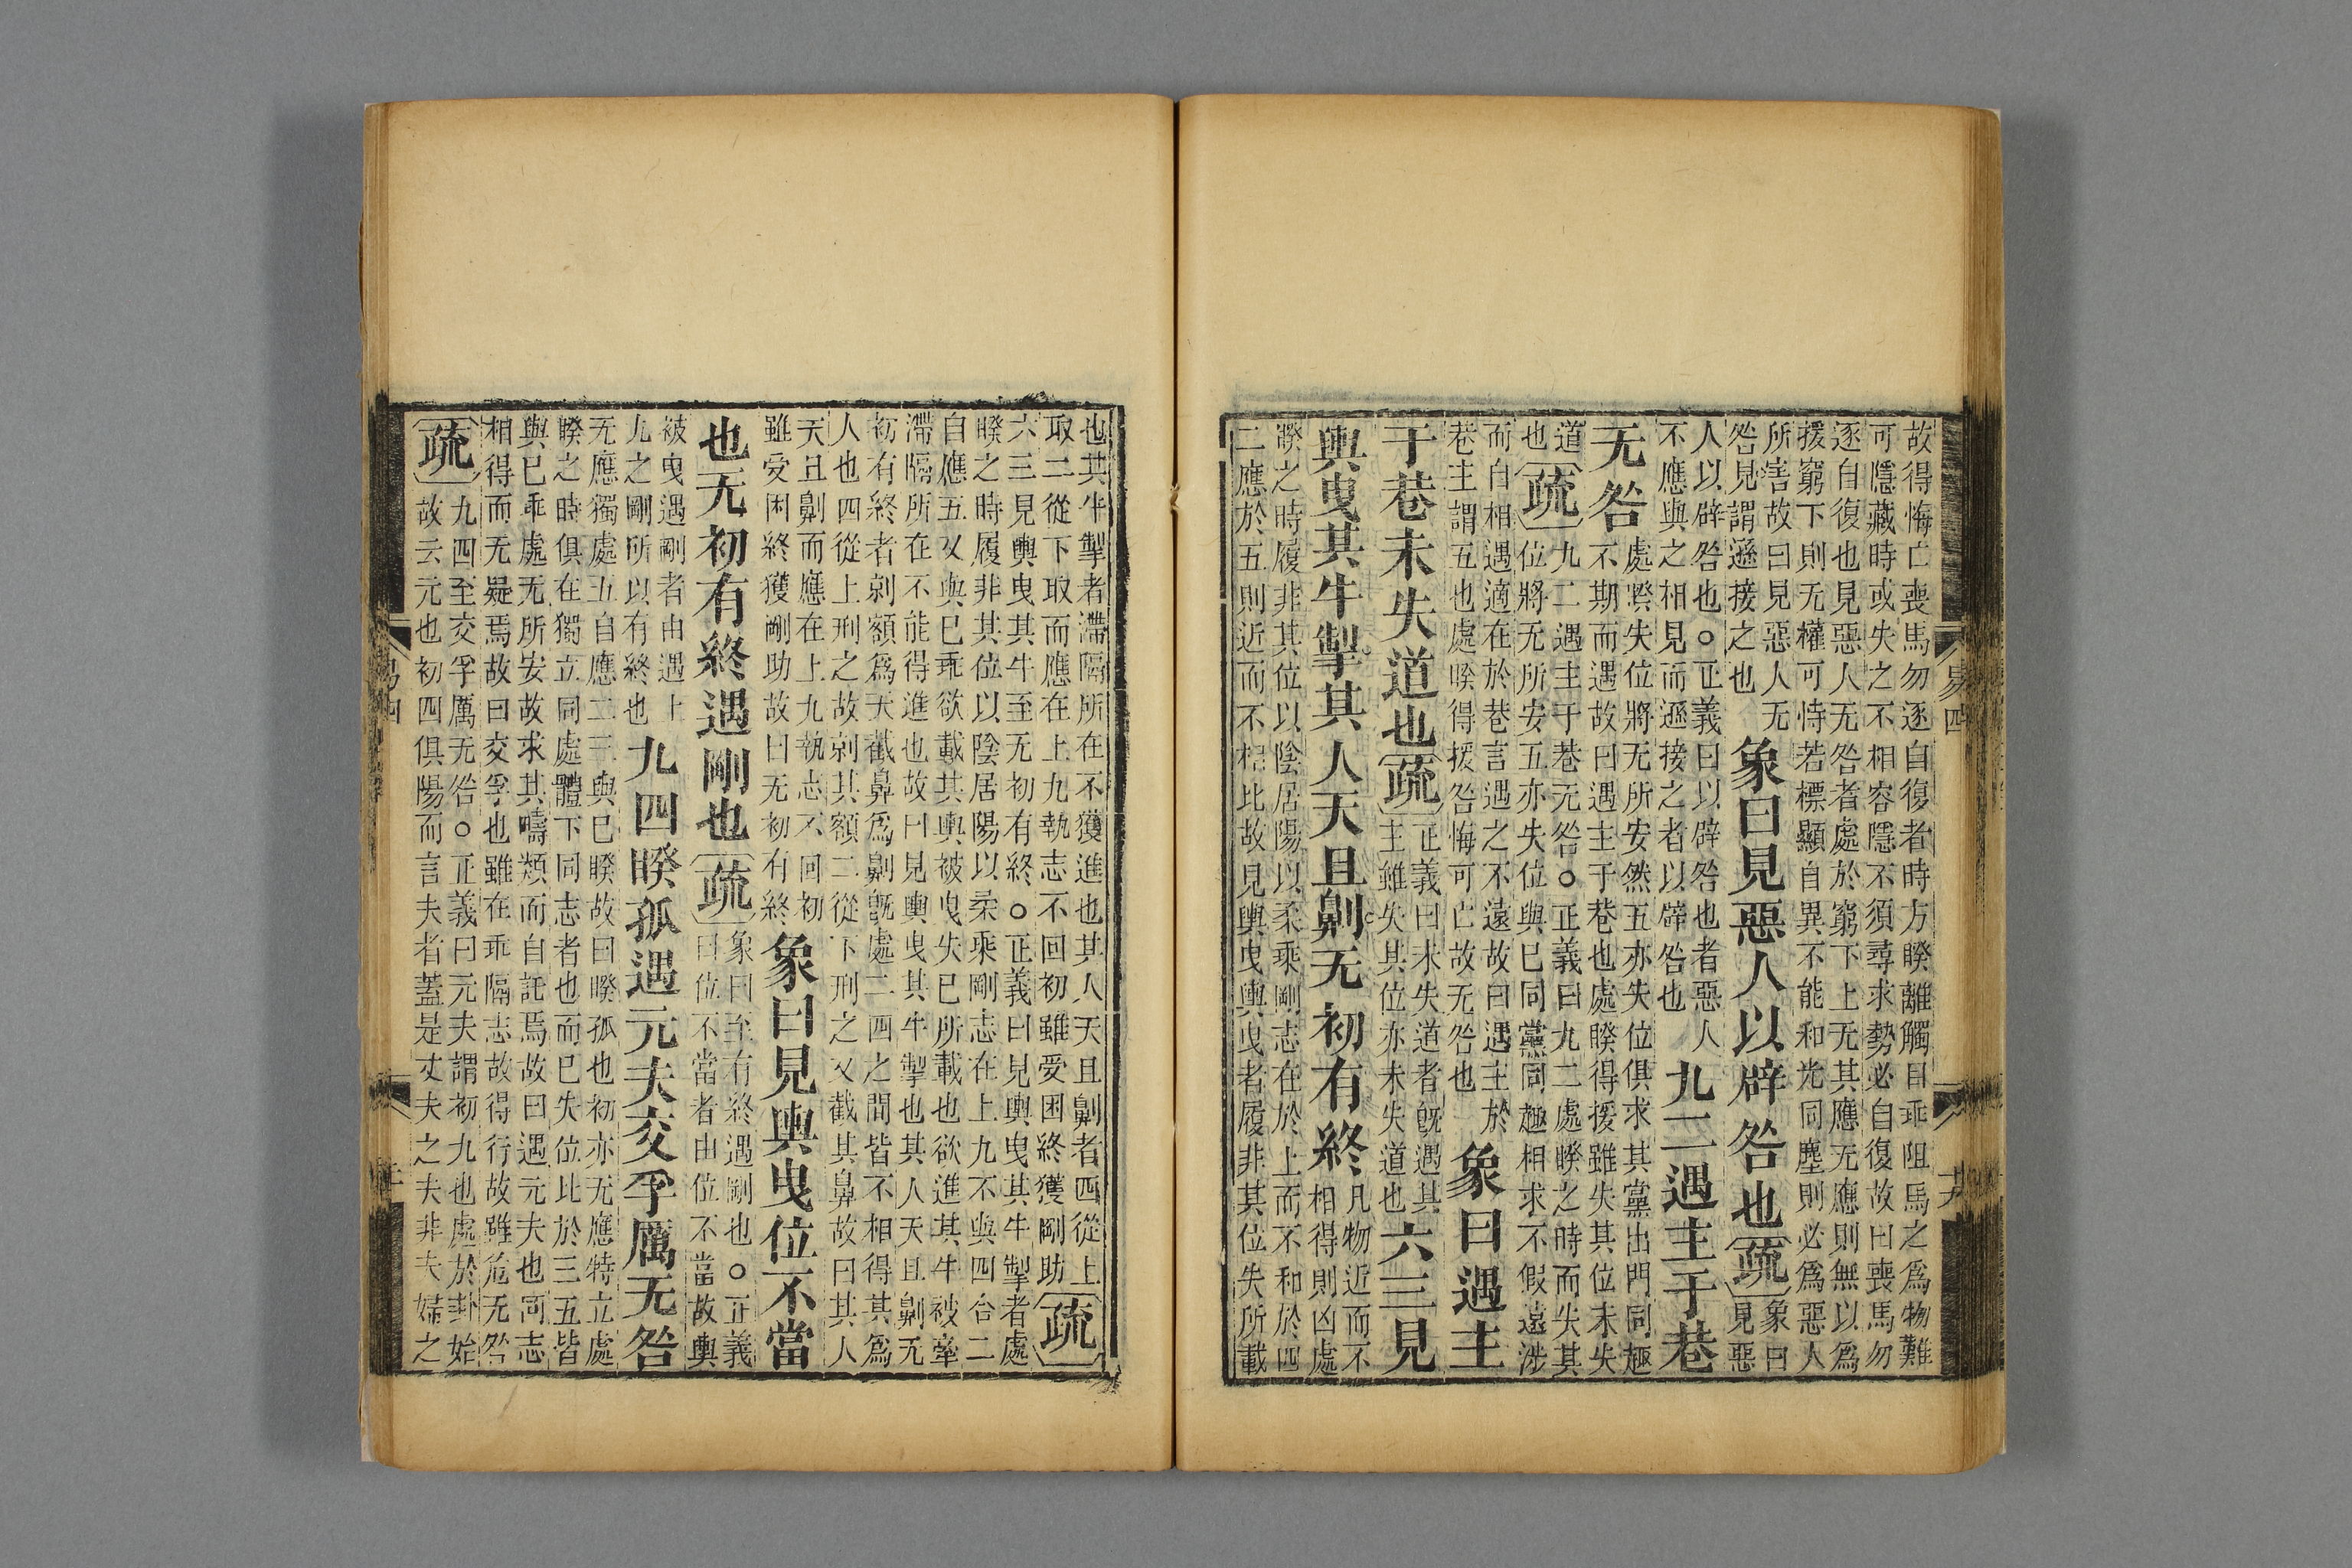 故得悔亡喪馬勿逐自復者時方睽離觸目乖阻馬之爲物難
可隱藏時或失之不相容隱不須尋求勢必自復故曰喪馬勿
逐自復也見惡人无咎者處於窮下上无其應无應則無以爲
援窮下則无權可恃若標顯自異不能和光同塵則必爲惡人
所害故曰見惡人无
咎見謂遜接之也
象曰見惡人以辟咎也疏
象曰
見惡
人以辟咎也○正義曰以辟咎也者惡人
不應與之相見而遜接之者以辟咎也
九二遇主于巷
无咎
處睽失位將无所安然五亦失位俱求其黨出門同趣
不期而遇故曰遇主于巷也處睽得援雖失其位未失
道
也
疏
九二遇主于巷无咎○正義曰九二處睽之時而失其
位將无所安五亦失位與已同黨同趣相求不假遠涉
而自相遇適在於巷言遇之不遠故曰遇主於
巷主謂五也處睽得援咎悔可亡故无咎也
象曰遇主
于巷未失道也疏
正義曰未失道者旣遇其
主雖失其位亦未失道也
六三見
輿曳其牛掣其人天且劓无初有終
凡物近而不
相得則凶處
睽之時履非其位以陰居陽以柔乘剛志在於上而不和於四
二應於五則近而不相比故見輿曳輿曳者履非其位失所載
易四
也其牛掣者滯隔所在不獲進也其人天且劓者四從上
取二從下取而應在上九執志不回初雖受困終獲剛助
疏
六三見輿曳其牛至无初有終○正義曰見輿曳其牛掣者處
睽之時履非其位以陰居陽以柔乘剛志在上九不與四合二
自應五又與已乖欲載其輿被曳失已所載也欲進其牛被牽
滯隔所在不能得進也故曰見輿曳其牛掣也其人天且劓无
初有終者剠額爲天截鼻爲劓旣處二四之間皆不相得其爲
人也四從上刑之故剠其額二從下刑之又截其鼻故曰其人
天且劓而應在上九執志不回初
雖受困終獲剛助故曰无初有終
象曰見輿曳位不當
也无初有終遇剛也疏
象曰至有終遇剛也○正義
曰位不當者由位不當故輿
被曳遇剛者由遇上
九之剛所以有終也
九四睽孤遇元夫交孚厲无咎
无應獨處五自應二三與已睽故曰睽孤也初亦无應特立處
睽之時俱在獨立同處體下同志者也而已失位比於三五皆
與已乖處无所安故求其疇類而自託焉故曰遇元夫也同志
相得而无疑焉故曰交孚也雖在乖隔志故得行故雖危无咎
疏
九四至交孚厲无咎○正義曰元夫謂初九也處於卦始
故云元也初四俱陽而言夫者蓋是丈夫之夫非夫婦之